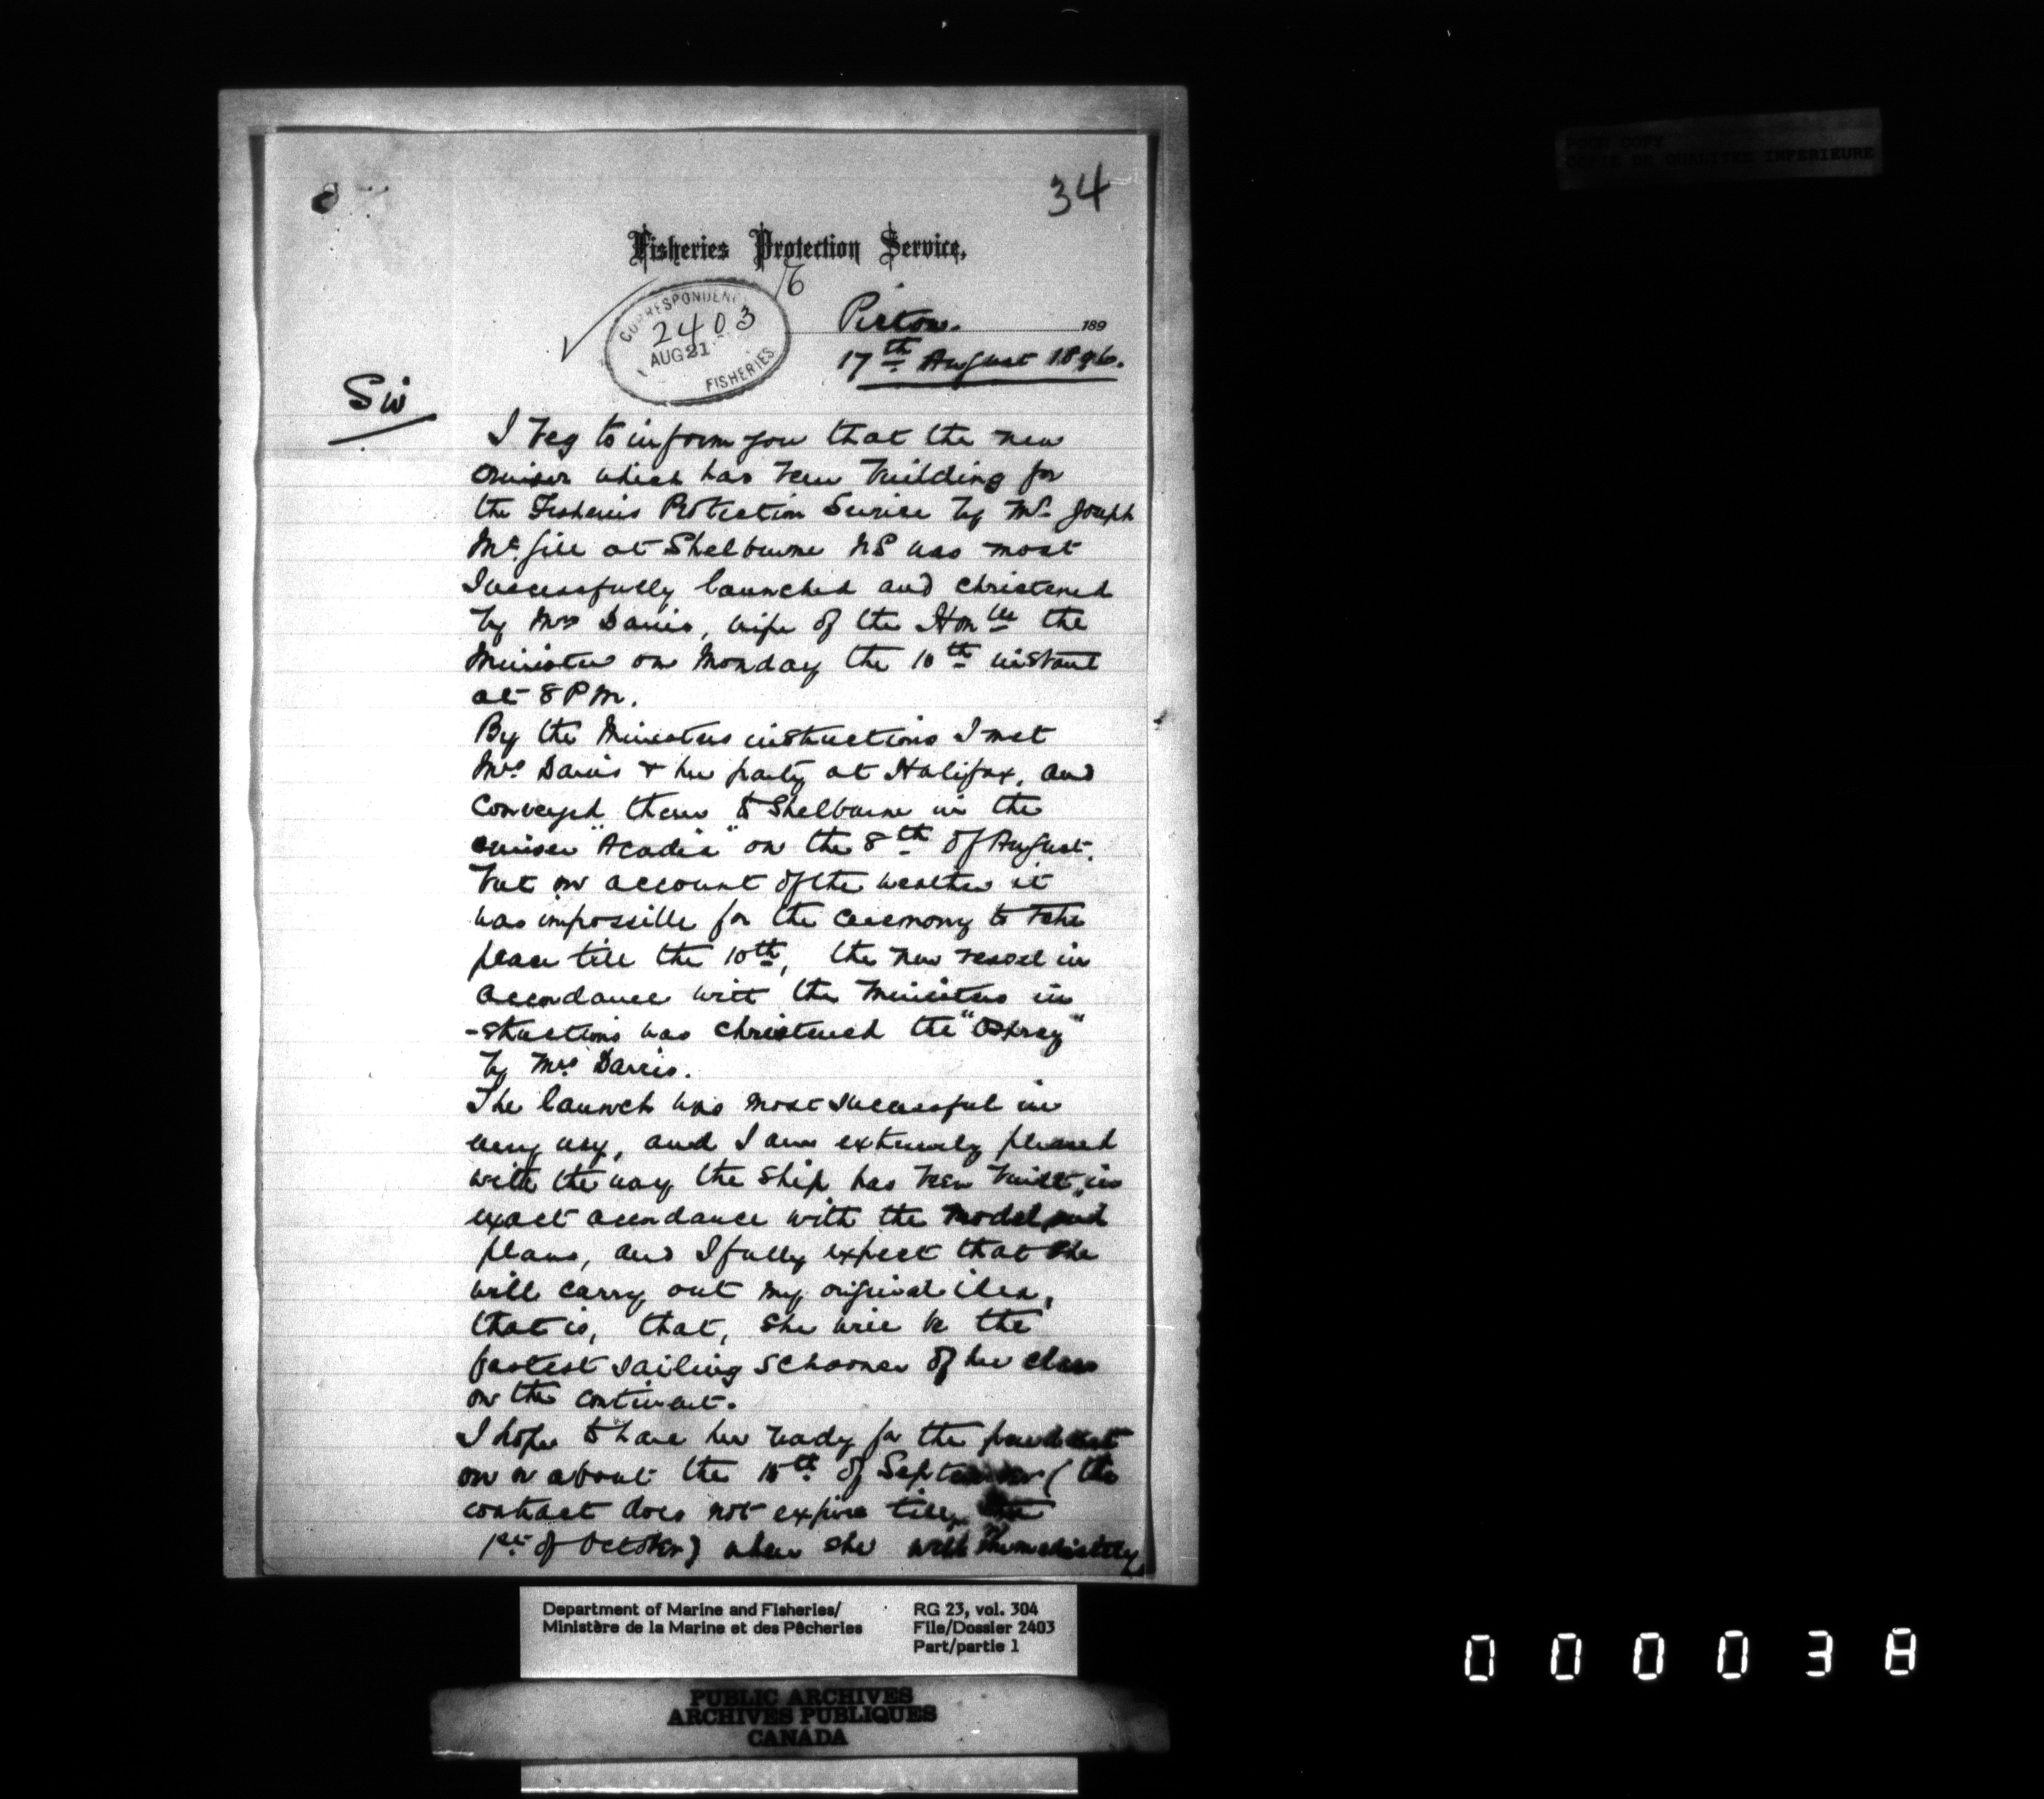 34
Fisheries Protection Service,
CORRESPONDENCE
2403
AUG 21
FISHERIES
76
Pictou. 189
17th August 1896.
Sir
I beg to inform you that the new
cruiser which has been building for
the Fisheries Protection Service by Mr Joseph
McGill at Shelburne NS was most
successfully launched and christened
by Mrs Davies, wife of the Honble the
Minister on Monday the 10th instant
at 8 PM.
By the Ministers instructions I met
Mrs Davies & her party at Halifax, and
conveyed them to Shelburne in the
cruiser "Acadia" on the 8th of August.
but on account of the weather it
was impossible for the ceremony to take
place till the 10th, the new vessel in
accordance with the Ministers in
-structions was christened the "Osprey"
by Mrs Davies.
The launch was most successful in
every way, and I am extremely pleased
with the way the ship has been built, in
exact accordance with the model and
plans, and I fully expect that she
will carry out my original idea,
that is, that, she will be the
fastest sailing schooner of her class
on the continent.
I hope to have her ready for the pendant
on or about the 15th of September (the
contract does not expire till the
1st of October) when she will immediately
POOR COPY
COPIE DE QUALITEE INFERIEURE
Department of Marine and Fisheries/
Ministère de la Marine et des Pêcheries
RG 23, vol. 304
File/Dossier 2403
Part/partie 1
PUBLIC ARCHIVES
ARCHIVES PUBLIQUES
CANADA
000038